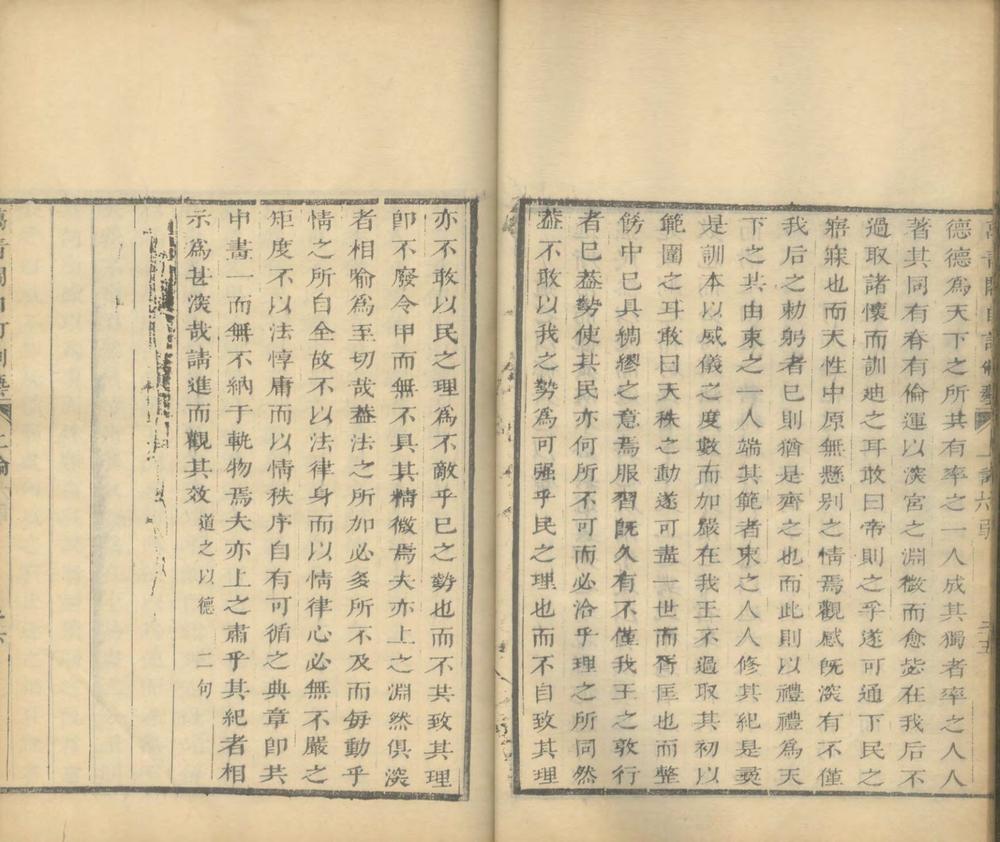 德德爲天下之所共有率之一人成其獨者率之人人
著其同有脊有倫運以淡宮之淵微而愈毖在我后不
過取諸懷而訓迪之耳敢曰帝則之孚遂可通下民之
寤寐也而天性中原無懸別之情焉觀感旣淡有不僅
我后之勅躬者已則猶是齊之也而此則以禮禮爲天
下之共由東之一人端其範者東之人人修其紀是彛
是訓本以威儀之度數而加嚴在我王不過取其初以
範圍之耳敢曰天秩之動遂可盡一世而胥匡也而整
飭中已具綢繆之意焉服習旣久有不僅我王之敦行
者已葢勢使其民亦何所不可而必洽乎理之所同然
葢不敢以我之勢爲可强乎民之理也而不自致其理
亦不敢以民之理爲不敵乎已之勢也而不共致其理
卽不廢令甲而無不具其精微焉夫亦上之淵然俱淡
者相喻爲至切哉葢法之所加必多所不及而每動乎
情之所自全故不以法律身而以情律心必無不嚴之
矩度不以法惇庸而以情秩序自有可循之典章卽共
申畫一而無不納于軌物焉夫亦上之肅乎其紀者相
示爲甚淡哉請進而觀其效 道之以德 二句